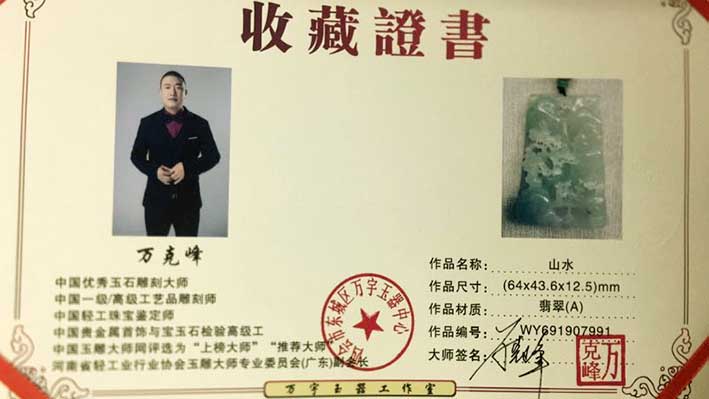 收藏證書
万克峰
中国优秀玉石雕刻大师
中国一级/高级工艺品雕刻师
中国轻工珠宝鉴定师
中国贵金属首饰与宝玉石检验高级工
中国玉雕大师网评选为“上榜大师”“推荐大师”
河南省轻工业行业协会玉雕大师专业委员会(广东)副会长
四会市东城区万宇玉器中心
作品名称: 山水
作品尺寸: (64x43.6x12.5)mm
作品材质: 翡翠(A)
作品编号: WY691907991
大师签名: 万克峰
万克峰
万宇玉器工作室